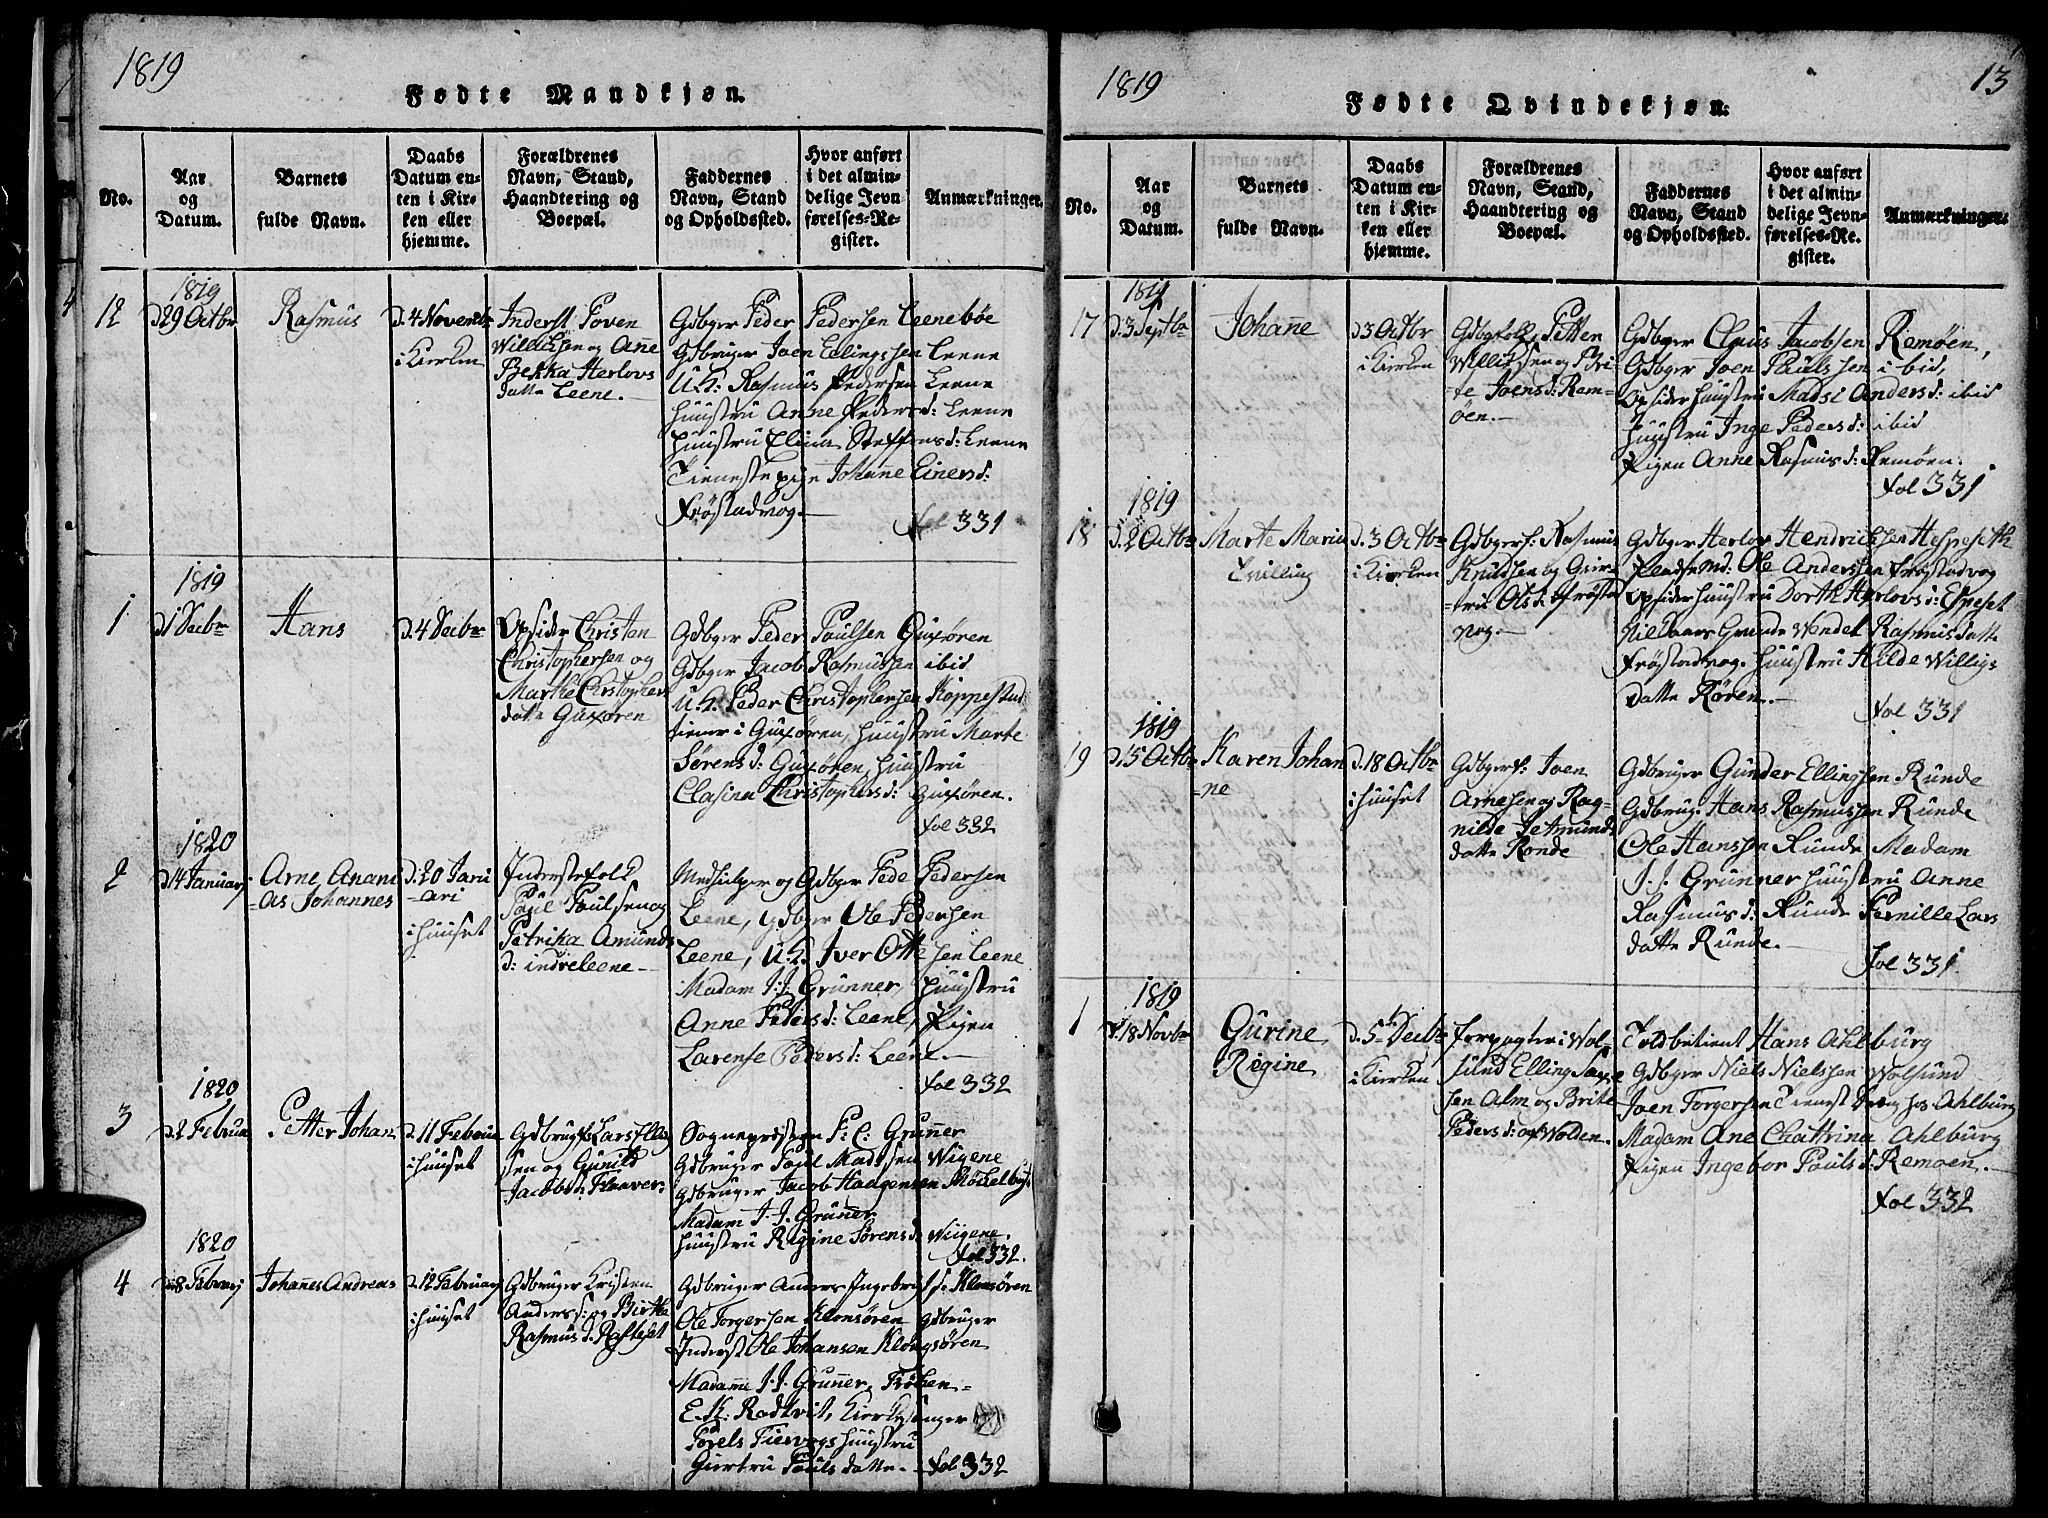 1819
Fødte Mandkjøn.
No.
Aar
og
Datum.
Barnets
fulde Navn.
Daabs
Datum en-
ten i Kir-
ken eller
hjemme.
Forældrenes
Navn, Stand,
Haandtering og
Boepæl.
Faddernes
Navn, Stand
og Opholdssted.
Hvor anført
i det almin-
delige Jevn
førelses-Re-
gister.
Anmærkninger.
12
1819
d 29 Octbr
Rasmus
d. 4 Novembr
i Kierken
Inderst Poven
Willichsen og Anne
Bekka Herlovs
datte Leene.
Gdbger Peder Pedersen Leenebøe
Gdbruger Joen Ellingssen Leene
U.K. Rasmus Pedersen Leene
Huustru Anne Peders d: Leene
Huustru Elina Steffens d: Leene
Tienestepige Johanne Einers d:
Frøstadvog.
fol 331
1
1819
d 1 Decbr
Hans
d. 4 Decbr
Opsider Christen
Christophersen og
Marthe Christophers
datte Guxøren
Gdbger Peder Paulsen Guxøren
Gdbger Jacob Rasmussen ibid
U.K. Peder Christophersen Koppestad
tiener i Guxøren, Huustru Marte
Sørens d: Guxøren, Huustru
Clasina Christophers d: Guxøren.
fol 332
2
1820
d 14 Januarj
Arne Anani
=as Johannes
d. 20 Janu
=ari
i Huuset
Inderstefolk
Paul Paulsen og
Petrika Amunds
d: indreleene
Medhielper og Gdbger Pede Pedersen
Leene, Gdbger Ole Pedersen
Leene, U.K. Iver Ottesen Leene
Madam J. J. Grünner, Huustru
Anne Peders d: Leene, Pigen
Larense Peders d: Leene.
fol 332
3
1820
d 2 Februa
Petter Johan
d. 11 Februa
i Huuset
Gdbrugf Lars Elling
sen og Gunild
Jacobs d. Fleaver.
Sognepræsten F. C. Grünner
Gdbruger Paul Madssen Wigene
Gdbruger Jacob Haagensen Møchelbust
Madam J. J. Grünner
Huustru Rigine Sørens d. Wiigene.
fol 332.
4
1820
d 8 Februarj
Johannes Andreas
d. 12 Februarj
i Huuset
Gdbruger Kristen
Anders s: og Birthe
Rasmus d. Rasteset
Gdbruger Anders Ingebregt s: Klonsøren
Ole Torgersen Klonsøren Gdbruger
Inderst Ole Johansen Klongsøren
Madame J. J. Grunner, Frøken
E. K. Rodtvit, Kierkesanger
Huustru
Giertru Pouls datte. fol 332
1819
13
Fødte Qvindekjøn.
No.
Aar
og
Datum.
Barnets
fulde Navn.
Daabs
Datum en-
ten i Kir-
ken eller
hjemme.
Forældrenes
Navn, Stand,
Haandtering og
Boepæl.
Faddernes
Navn, Stand
og Opholdssted.
Hvor anført
i det almin-
delige Jevn-
førelses-Re-
gister.
Anmærkninger.
17
1819
d. 3 Septbr
Johanne
d 3 Octbr
i Kierken
Gdbgfolk Petter
Willichsen og Bri
te Joens d: Rem-
øen.
Gdbger Claus Jacobsen Remøen,
Gdbger Joen Paulssen ibid,
Opsider Huustru Madsi Anders d: ibid
Huustru Inge Peders d: ibid
Pigen Anne Rasmus d: Remøen.
fol 331
18
1819
d. 2 Octbr
Marte Maria
Tvilling
d. 3 Octbr
i Kierken
Gdbger f: Rasmus
Knudsen og Giər-
=tru Ols d: Frøstad
vog.
Gdbger Herlov Hendrichsen Heppeseth
Ole Anderssen Frøstadvog
Opsider Huustru Dorthe Herlovs d: Espeset
Gunde Wendel Rasmusdatte
Frøstadvog. Huustru Hilde Willigs
datte Røren.
fol 331
19
1819
d. 15 Octbr
Karen Johan
=ne
d. 18 Octbr
i Huuset
Gdbgerf: Joen
Arnesen og Rag-
nilde Jetmunds
datte Ronde
Gdbruger Gunder Ellingsen Runde
Gdbrug. Hans Rasmussen Runde
Ole Hanssen Runde Madam
J. J. Grünner Huustru Anne
Rasmus d: Runde Pernille Lars
datte Runde.
fol 331
1
1819
d. 18 Novbr
Gurine
Rigine
d. 5te Decbr
i Kierken
Forpagter i Vol-
sund Elling Saxe
sen Alm og Brite
Peders d: af Wolden.
Toldbetient Hans Ahlburg
Gdbger Niels Nielssen Wolsund
Joen Torgersen Tienest Dreng hos Ahlburg
Madam Ane Chattrina Ahlburg
Pigen Ingebor Pouls d: Remoen.
fol 332